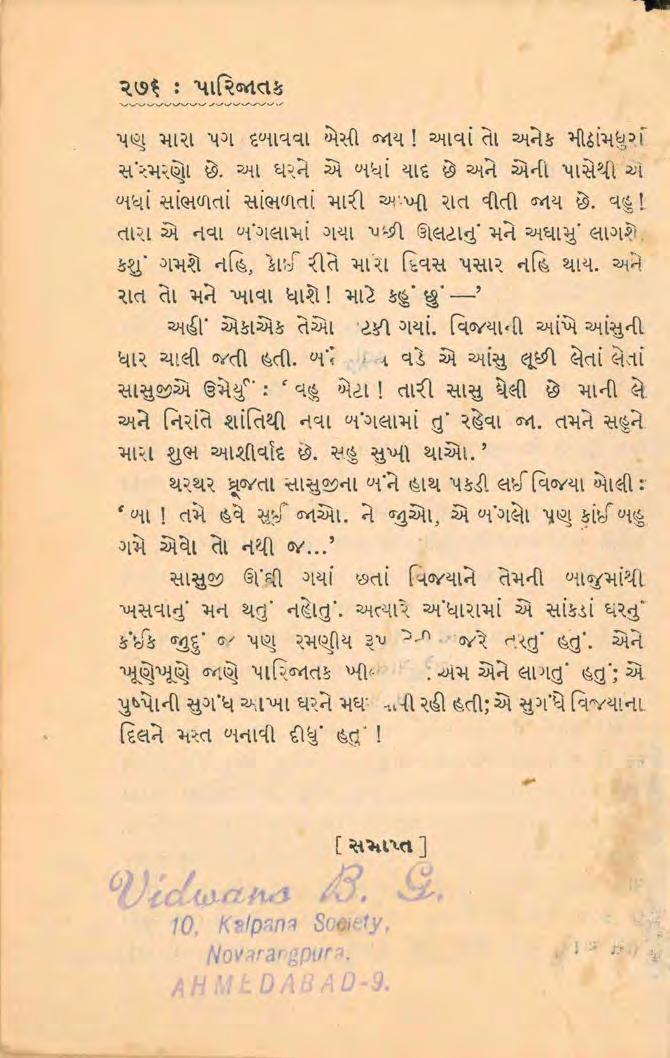 ૨૭૬ : પારિજાતક
પણ મારા પગ દબાવવા બેસી જાય! આવાં તો અનેક મીઠાંમધુરાં
સંસ્મરણો છે. આ ઘરને એ બધાં યાદ છે અને એની પાસેથી એ
બધાં સાંભળતાં સાંભળતાં મારી આખી રાત વીતી જાય છે. વહુ!
તારા એ નવા બંગલામાં ગયા પછી ઊલટાનું મને અઘામું લાગશે,
કશું ગમશે નહિ, કોઈ રીતે મારા દિવસ પસાર નહિ થાય. અને
રાત તો મને ખાવા ધાશે! માટે કહું છું —’
અહીં એકાએક તેઓ અટકી ગયાં. વિજયાની આંખે આંસુની
ધાર ચાલી જતી હતી. વડે એ આંસુ લૂછી લેતાં લેતાં
સાસુજીએ ઉમેર્યું : ‘વહુ બેટા! તારી સાસુ ઘેલી છે માની લે
અને નિરાંતે શાંતિથી નવા બંગલામાં તું રહેવા જા. તમને સહુને
મારા શુભ આશીર્વાદ છે. સહુ સુખી થાઓ.’
થરથર ધ્રૂજતા સાસુજીના બંને હાથ પકડી લઈ વિજયા બોલી :
‘બા ! તમે હવે સૂઈ જાઓ. ને જુઓ, એ બંગલો પણ કાંઈ બહુ
ગમે એવો તો નથી જ...’
સાસુજી ઊંઘી ગયાં છતાં વિજયાને તેમની બાજુમાંથી
ખસવાનું મન થતું નહોતું. અત્યારે અંધારામાં એ સાંકડાં ઘરનું
કંઈક જુદું જ પણ રમણીય રૂપ તેની નજરે તરતું હતું. એને
ખૂણેખૂણે જાણે પારિજાતક એમ એને લાગતું હતું; એ
પુષ્પોની સુગંધ આખા ઘરને રહી હતી; એ સુગંધે વિજયાના
દિલને મસ્ત બનાવી દીધું હતું !
[ સમાપ્ત ]
Vidwans B. G.
10, Kalpana Society,
Novarangpura,
AHMEDABAD-9.